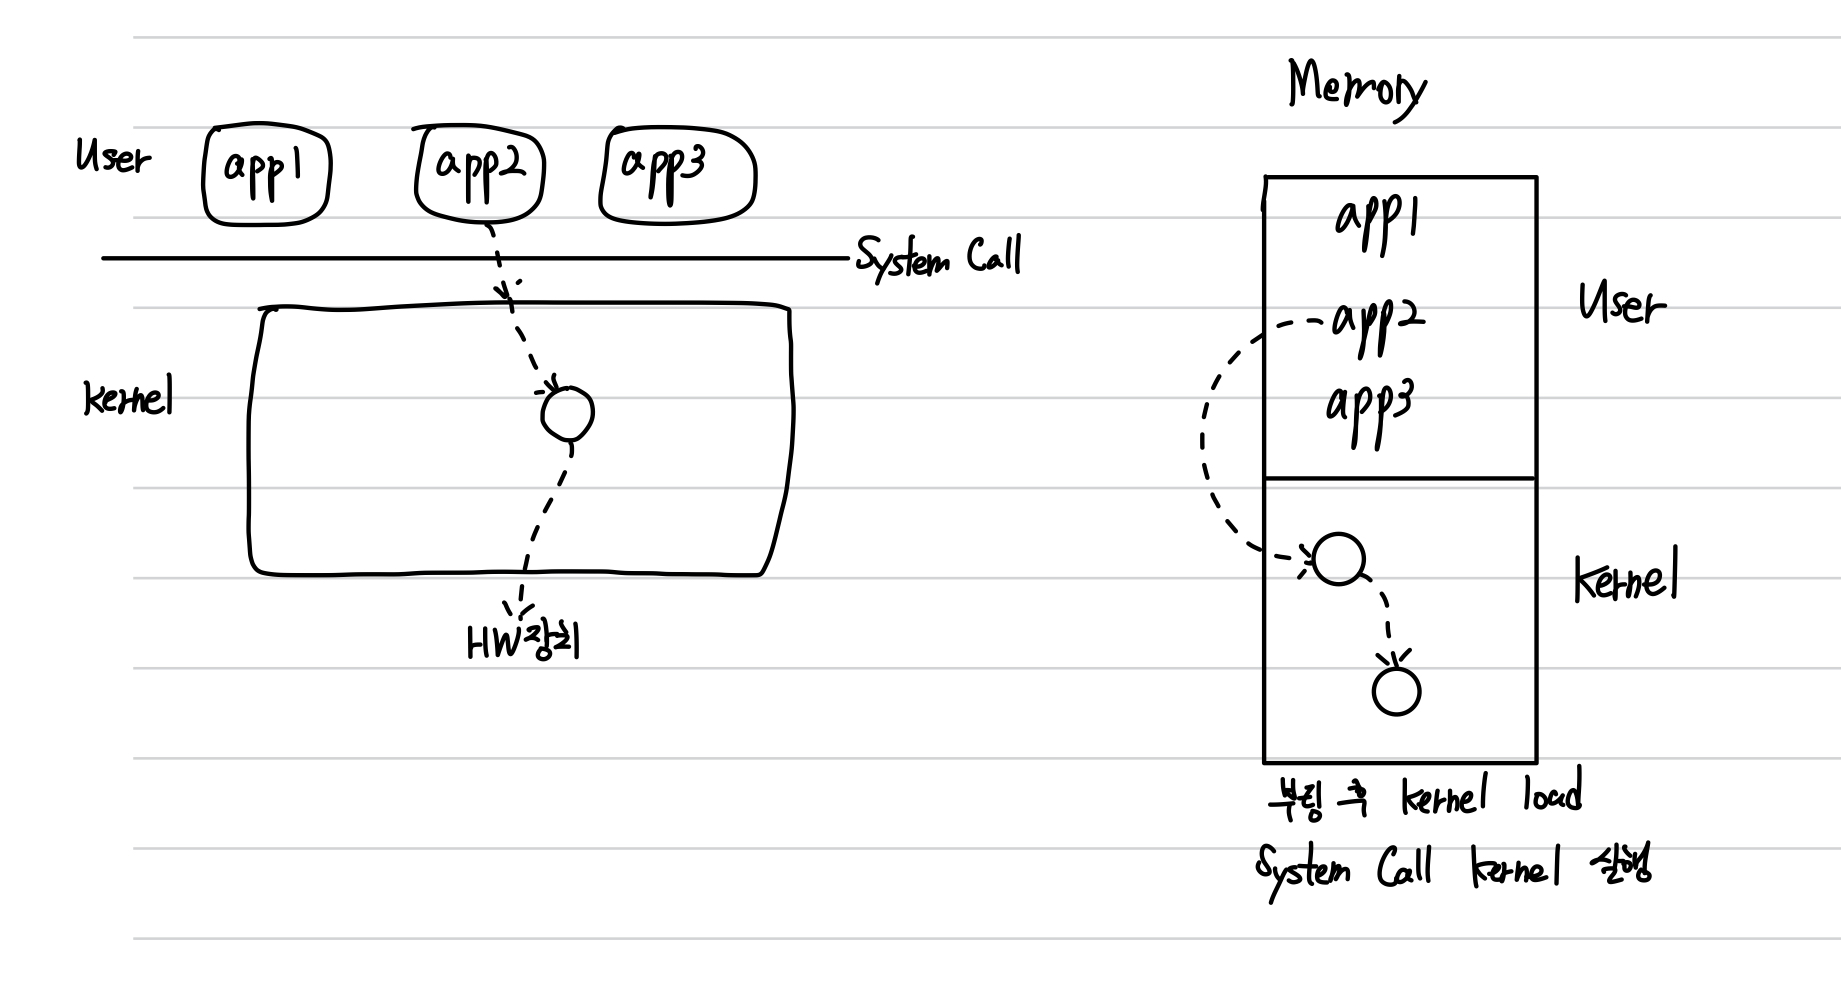 User app1 app2 app3
System Call
Kernel
HW장치
Memory
app1
app2
app3
User
Kernel
부팅 후 kernel load
System Call Kernel 실행